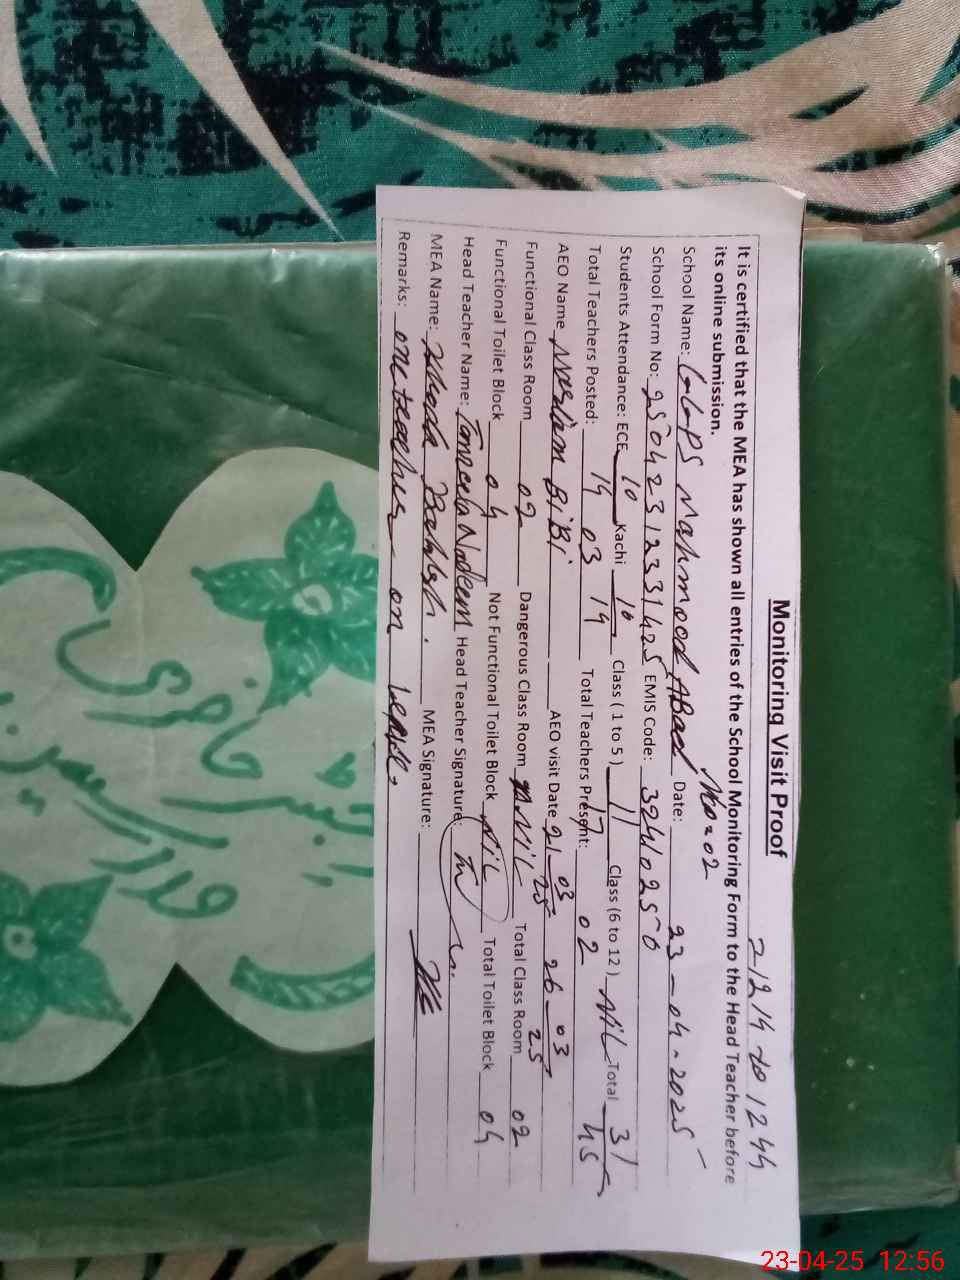 Monitoring Visit Proof
1214 to 1244
It is certified that the MEA has shown all entries of the School Monitoring Form to the Head Teacher before
its online submission.
No=02
School Name: GGPS Mahmood Abad Date: 23-04-2025
School Form No: EMIS Code:
Students Attendance: ECE 10 Kachi 10 Class ( 1 to 5 ) 11 Class (6 to 12 ) NIL Total 31
14 19 17 45
Total Teachers Posted: 03 Total Teachers Present: 02
AEO Name Mariam BiBi AEO visit Date 21-03-25 26-03-25
Functional Class Room 02 Dangerous Class Room NIL Total Class Room 02
Functional Toilet Block 04 Not Functional Toilet Block NIL Total Toilet Block 04
Head Teacher Name: Nadeem Head Teacher Signature:
MEA Name: MEA Signature:
Remarks: one teacher on leave.
23-04-25 12:56